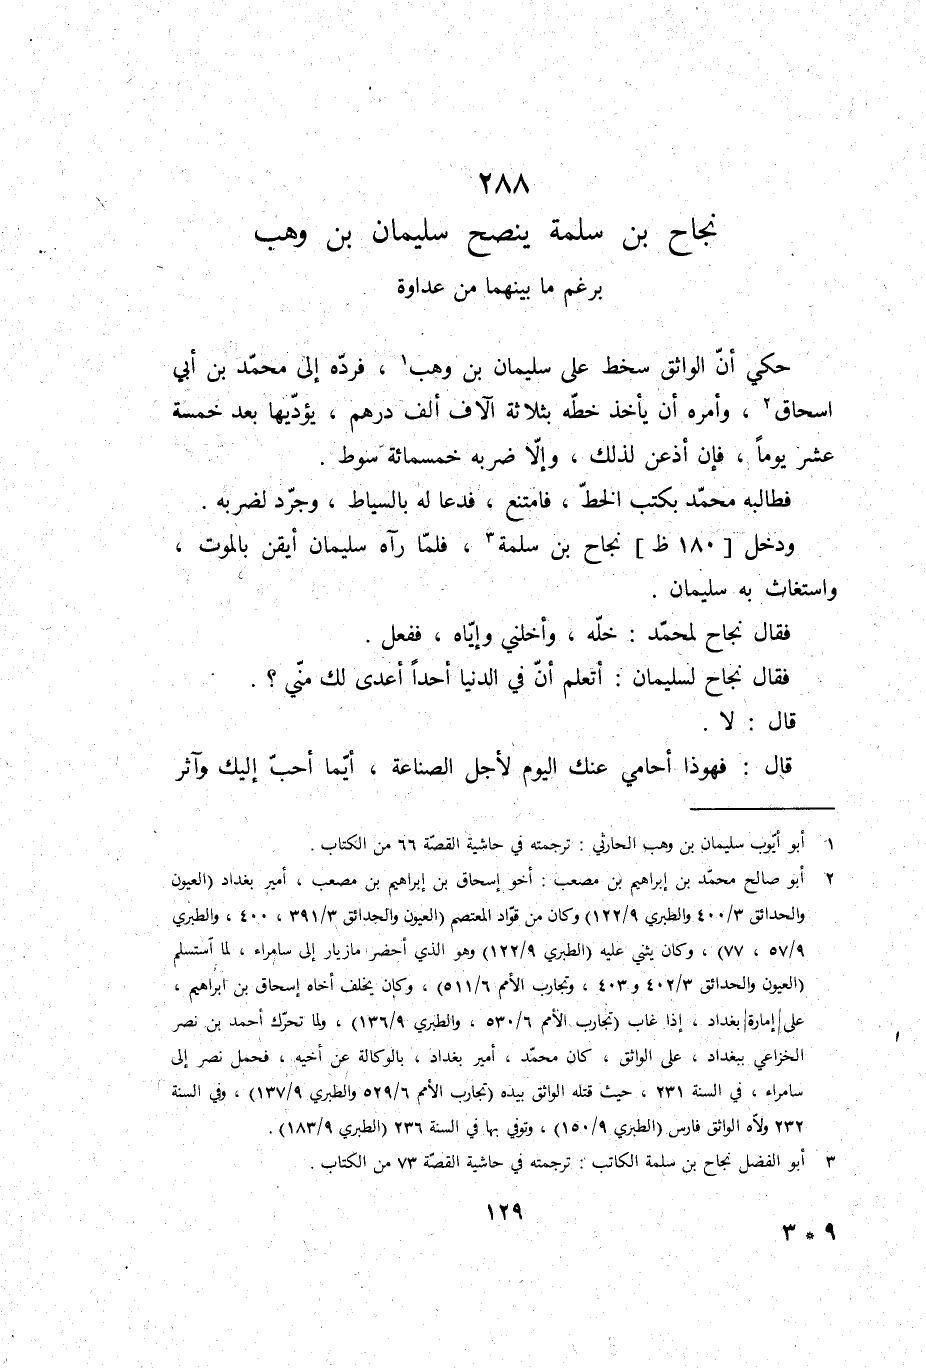 ٢٨٨
نجاح بن سلمة ينصح سليمان بن وهب
برغم ما بينهما من عداوة
حكي أنّ الواثق سخط على سليمان بن وهب١ ، فردّه إلى محمّد بن أبي
اسحاق٢ ، وأمره أن يأخذ خطّه بثلاثة آلاف ألف درهم ، يؤدّيها بعد خمسة
عشر يوماً ، فإن أذعن لذلك ، وإلّا ضربه خمسمائة سوط .
فطالبه محمّد بكتب الخطّ ، فامتنع ، فدعا له بالسياط ، وجرّد لضربه .
ودخل [ ١٨٠ ظ ] نجاح بن سلمة٣ ، فلمّا رآه سليمان أيقن بالموت ،
واستغاث به سليمان .
فقال نجاح لمحمّد : خلّه ، وأخلني وإيّاه ، ففعل .
فقال نجاح لسليمان : أتعلم أنّ في الدنيا أحداً أعدى لك منّي ؟ .
قال : لا .
قال : فهوذا أحامي عنك اليوم لأجل الصناعة ، أيّما أحبّ إليك وآثر
١ أبو أيّوب سليمان بن وهب الحارثي : ترجمته في حاشية القصّة ٦٦ من الكتاب .
٢ أبو صالح محمّد بن إبراهيم بن مصعب : أخو إسحاق بن إبراهيم بن مصعب ، أمير بغداد (العيون
والحدائق ٤٠٠/٣ والطبري ١٢٢/٩) وكان من قوّاد المعتصم (العيون والحدائق ٣٩١/٣ ، ٤٠٠ ، والطبري
٥٧/٩ ، ٧٧) ، وكان يثني عليه (الطبري ١٢٢/٩) وهو الذي أحضر مازيار إلى سامراء ، لما أستسلم
(العيون والحدائق ٤٠٢/٣ و ٤٠٣ ، وتجارب الأمم ٥١١/٦) ، وكان يخلف أخاه إسحاق بن ابراهيم ،
على إمارة بغداد ، إذا غاب (تجارب الأمم ٥٣٠/٦ ، والطبري ١٣٦/٩) ، ولما تحرّك أحمد بن نصر
الخزاعي ببغداد ، على الواثق ، كان محمّد ، أمير بغداد ، بالوكالة عن أخيه ، فحمل نصر إلى
سامراء ، في السنة ٢٣١ ، حيث قتله الواثق بيده (تجارب الأمم ٥٢٩/٦ والطبري ١٣٧/٩) ، وفي السنة
٢٣٢ ولاّه الواثق فارس (الطبري ١٥٠/٩) ، وتوفي بها في السنة ٢٣٦ (الطبري ١٨٣/٩) .
٣ أبو الفضل نجاح بن سلمة الكاتب : ترجمته في حاشية القصّة ٧٣ من الكتاب .
١٢٩
٩ * ٣